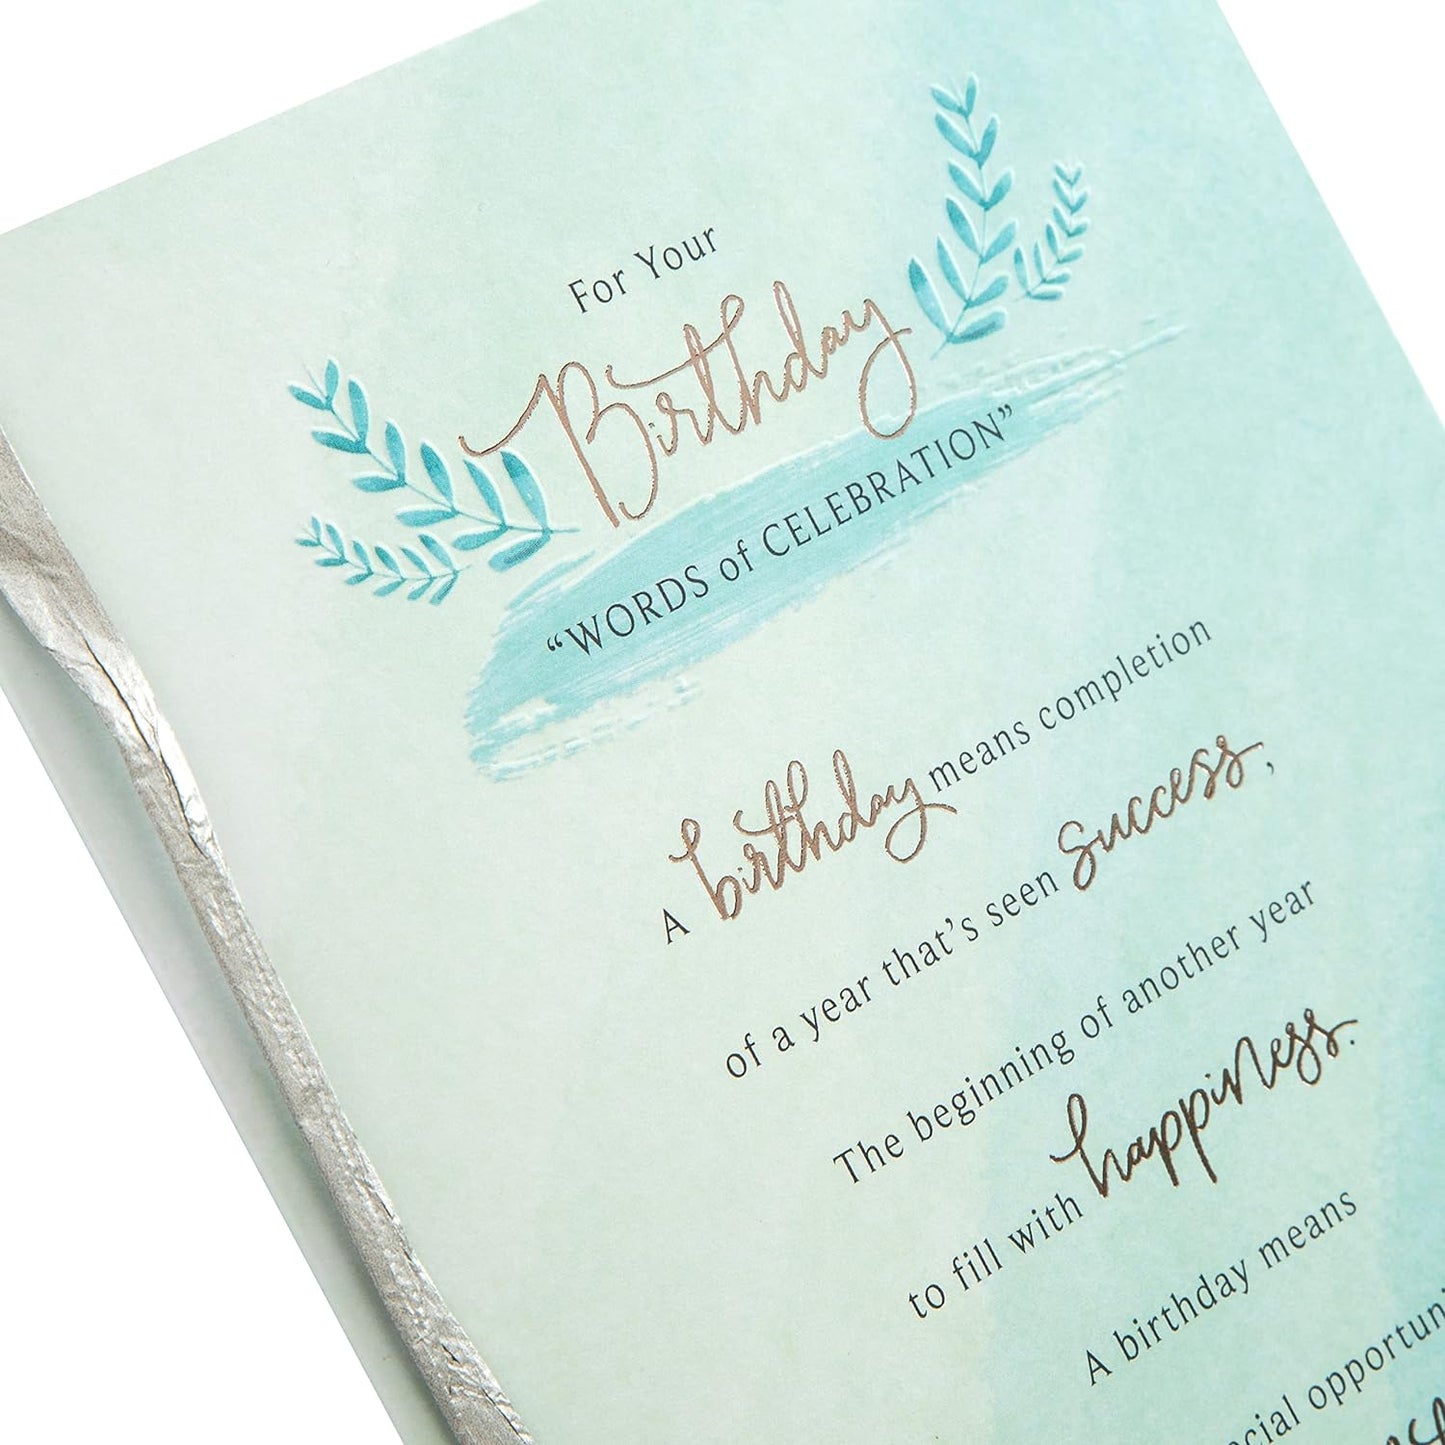 For Your
Birthday
“WORDS of CELEBRATION”
A birthday means completion
of a year that’s seen success,
The beginning of another year
to fill with happiness.
A birthday means